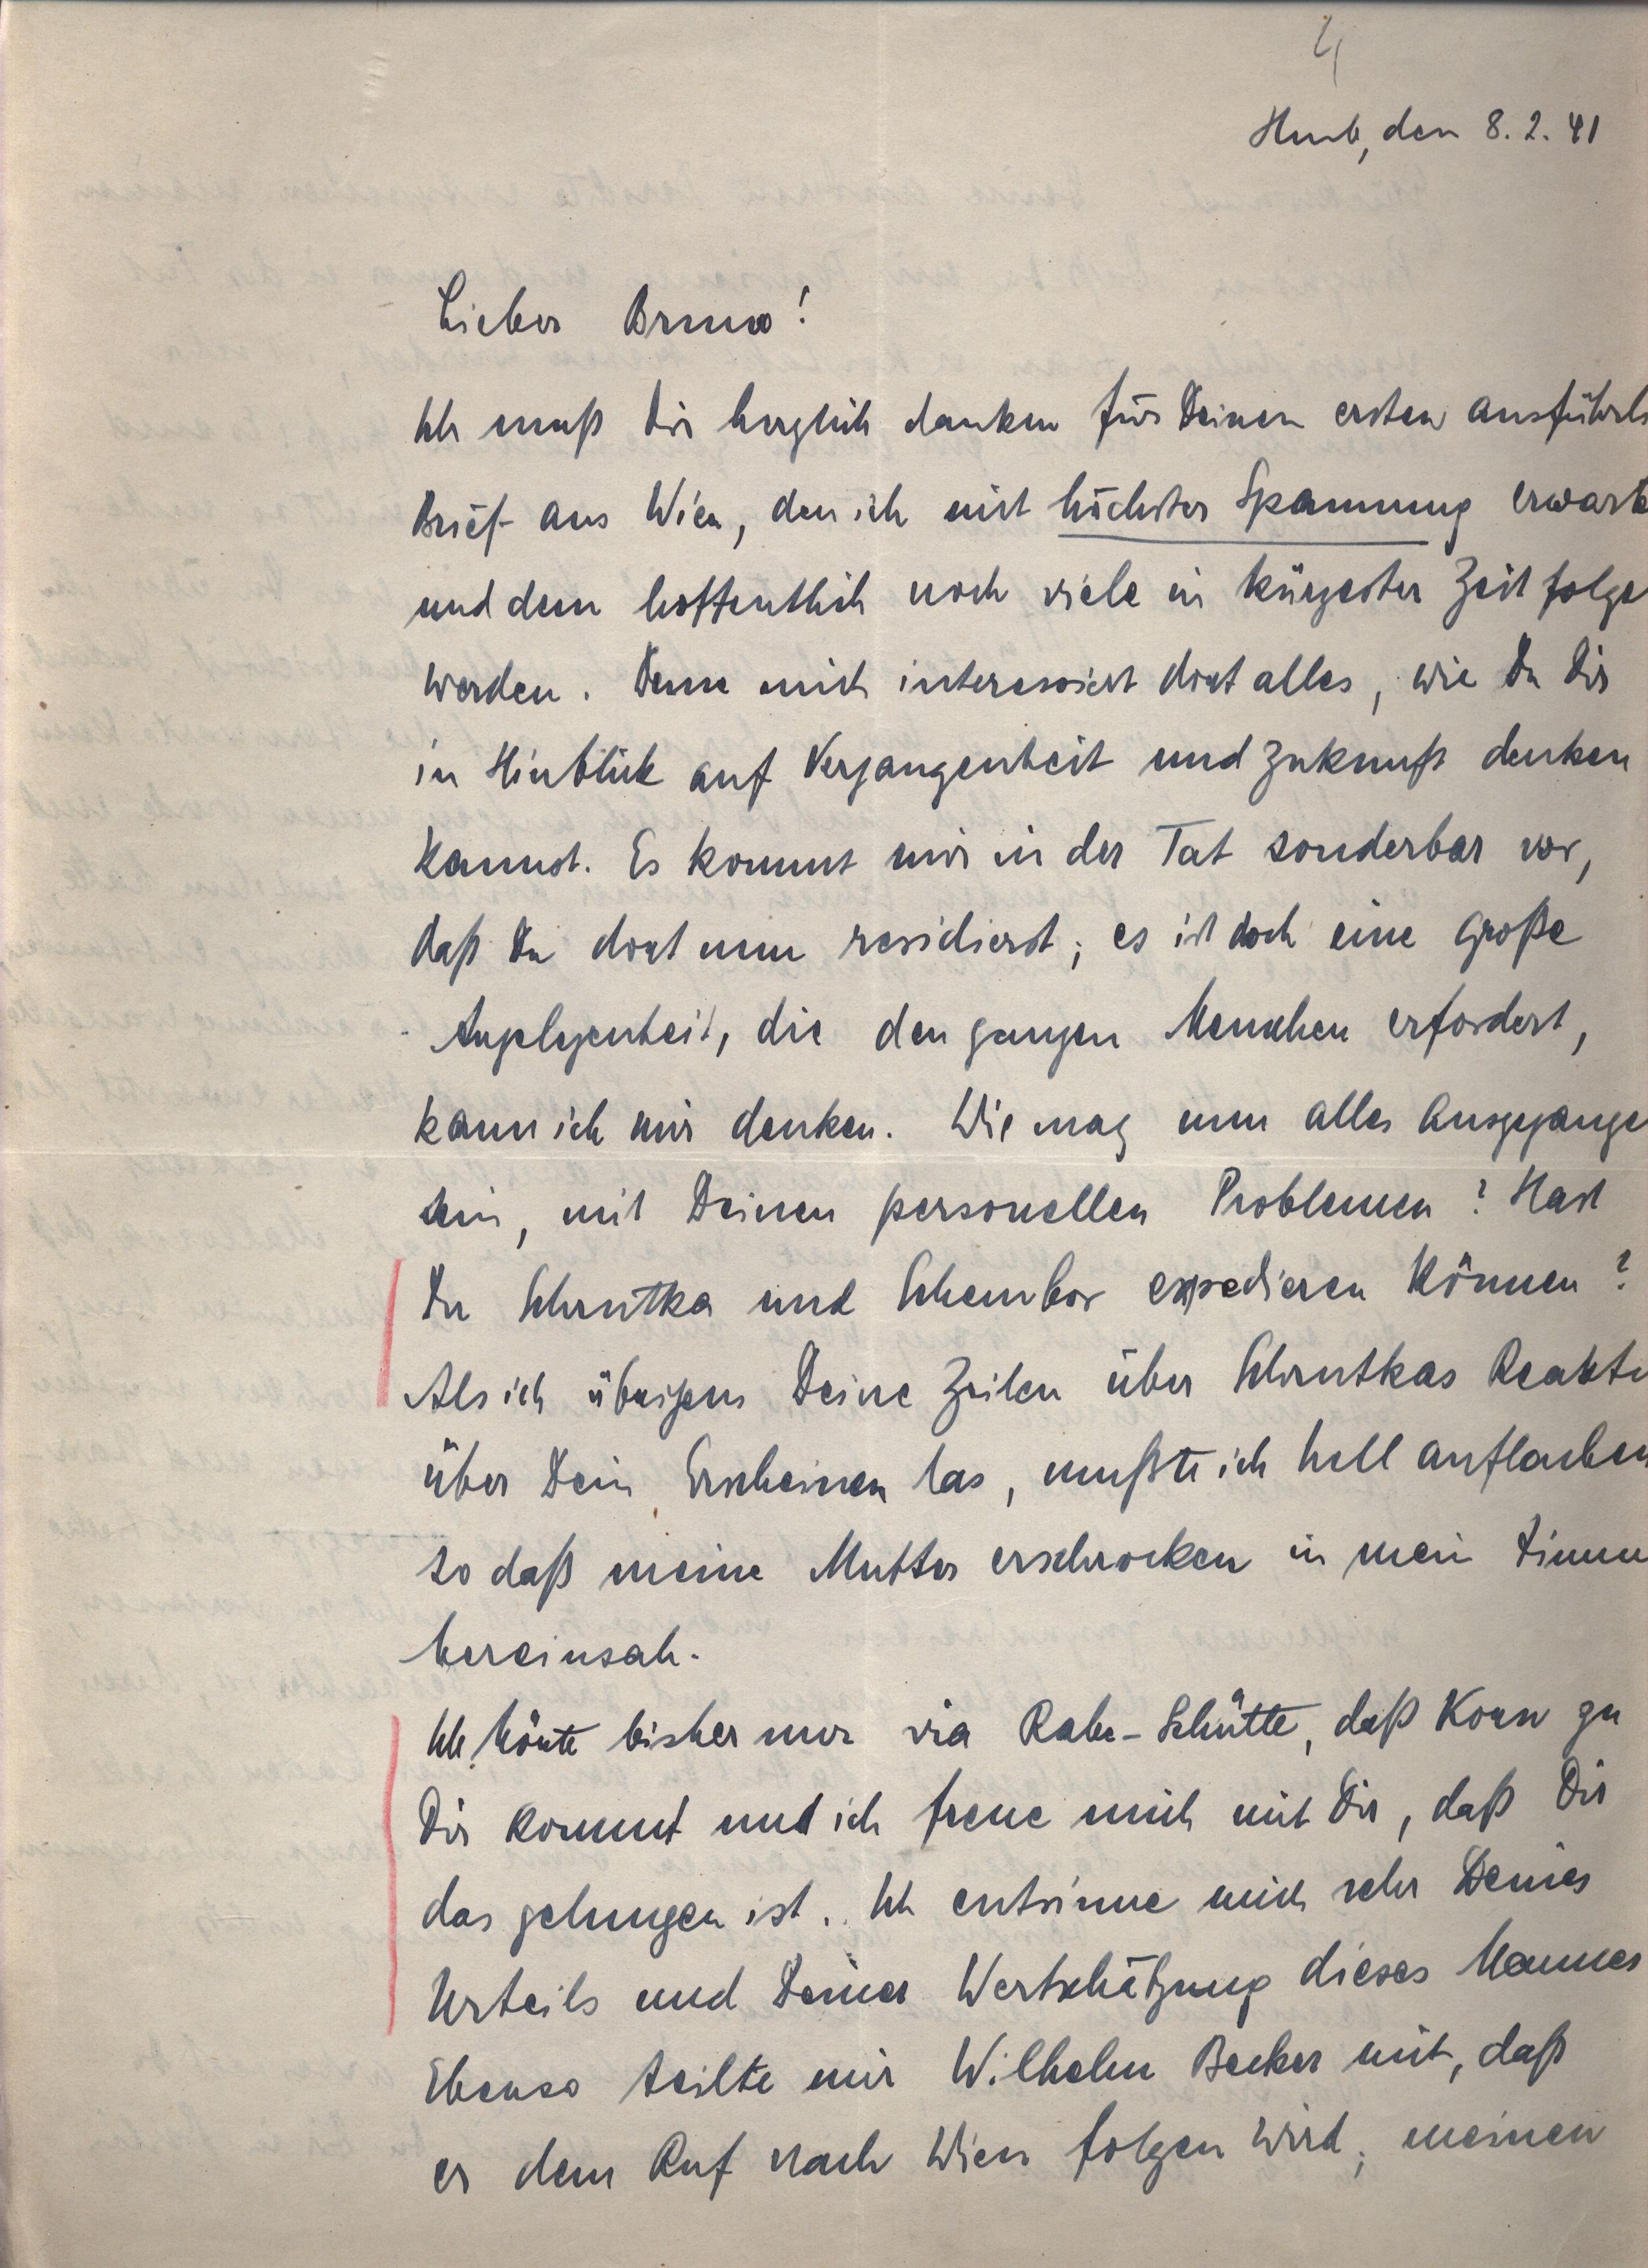 4
Hmb, den 8. 2. 41
Lieber Bruno!
Ich muß Dir herzlich danken für Deinen ersten ausführli
Brief aus Wien, den ich mit höchster Spannung erwarte
und dem hoffentlich noch viele in kürzester Zeit folge
werden. Denn mich interessiert dort alles, wie Du Dir
in Hinblick auf Vergangenheit und Zukunft denken
kannst. Es kommt mir in der Tat sonderbar vor,
daß Du dort nun residierst; es ist doch eine große
Angelegenheit, die den ganzen Menschen erfordert,
kann ich mir denken. Wie mag nun alles ausgegange
sein, mit Deinen personellen Problemen? Hast
Du Schrutka und Schembor expedieren können?
Als ich übrigens Deine Zeilen über Schrutkas Reakti
über Dein Erscheinen las, mußte ich hell auflachen
so daß meine Mutter erschrocken in mein Zimme
hereinsah.
Ich hörte bisher nur via Rabe-Schütte, daß Korn zu
Dir kommt und ich freue mich mit Dir, daß Dir
das gelungen ist. Ich entsinne mich sehr Deines
Urteils und Deiner Wertschätzung dieses Mannes
Ebenso teilte mir Wilhelm Becker mit, daß
er dem Ruf nach Wien folgen wird; meinen